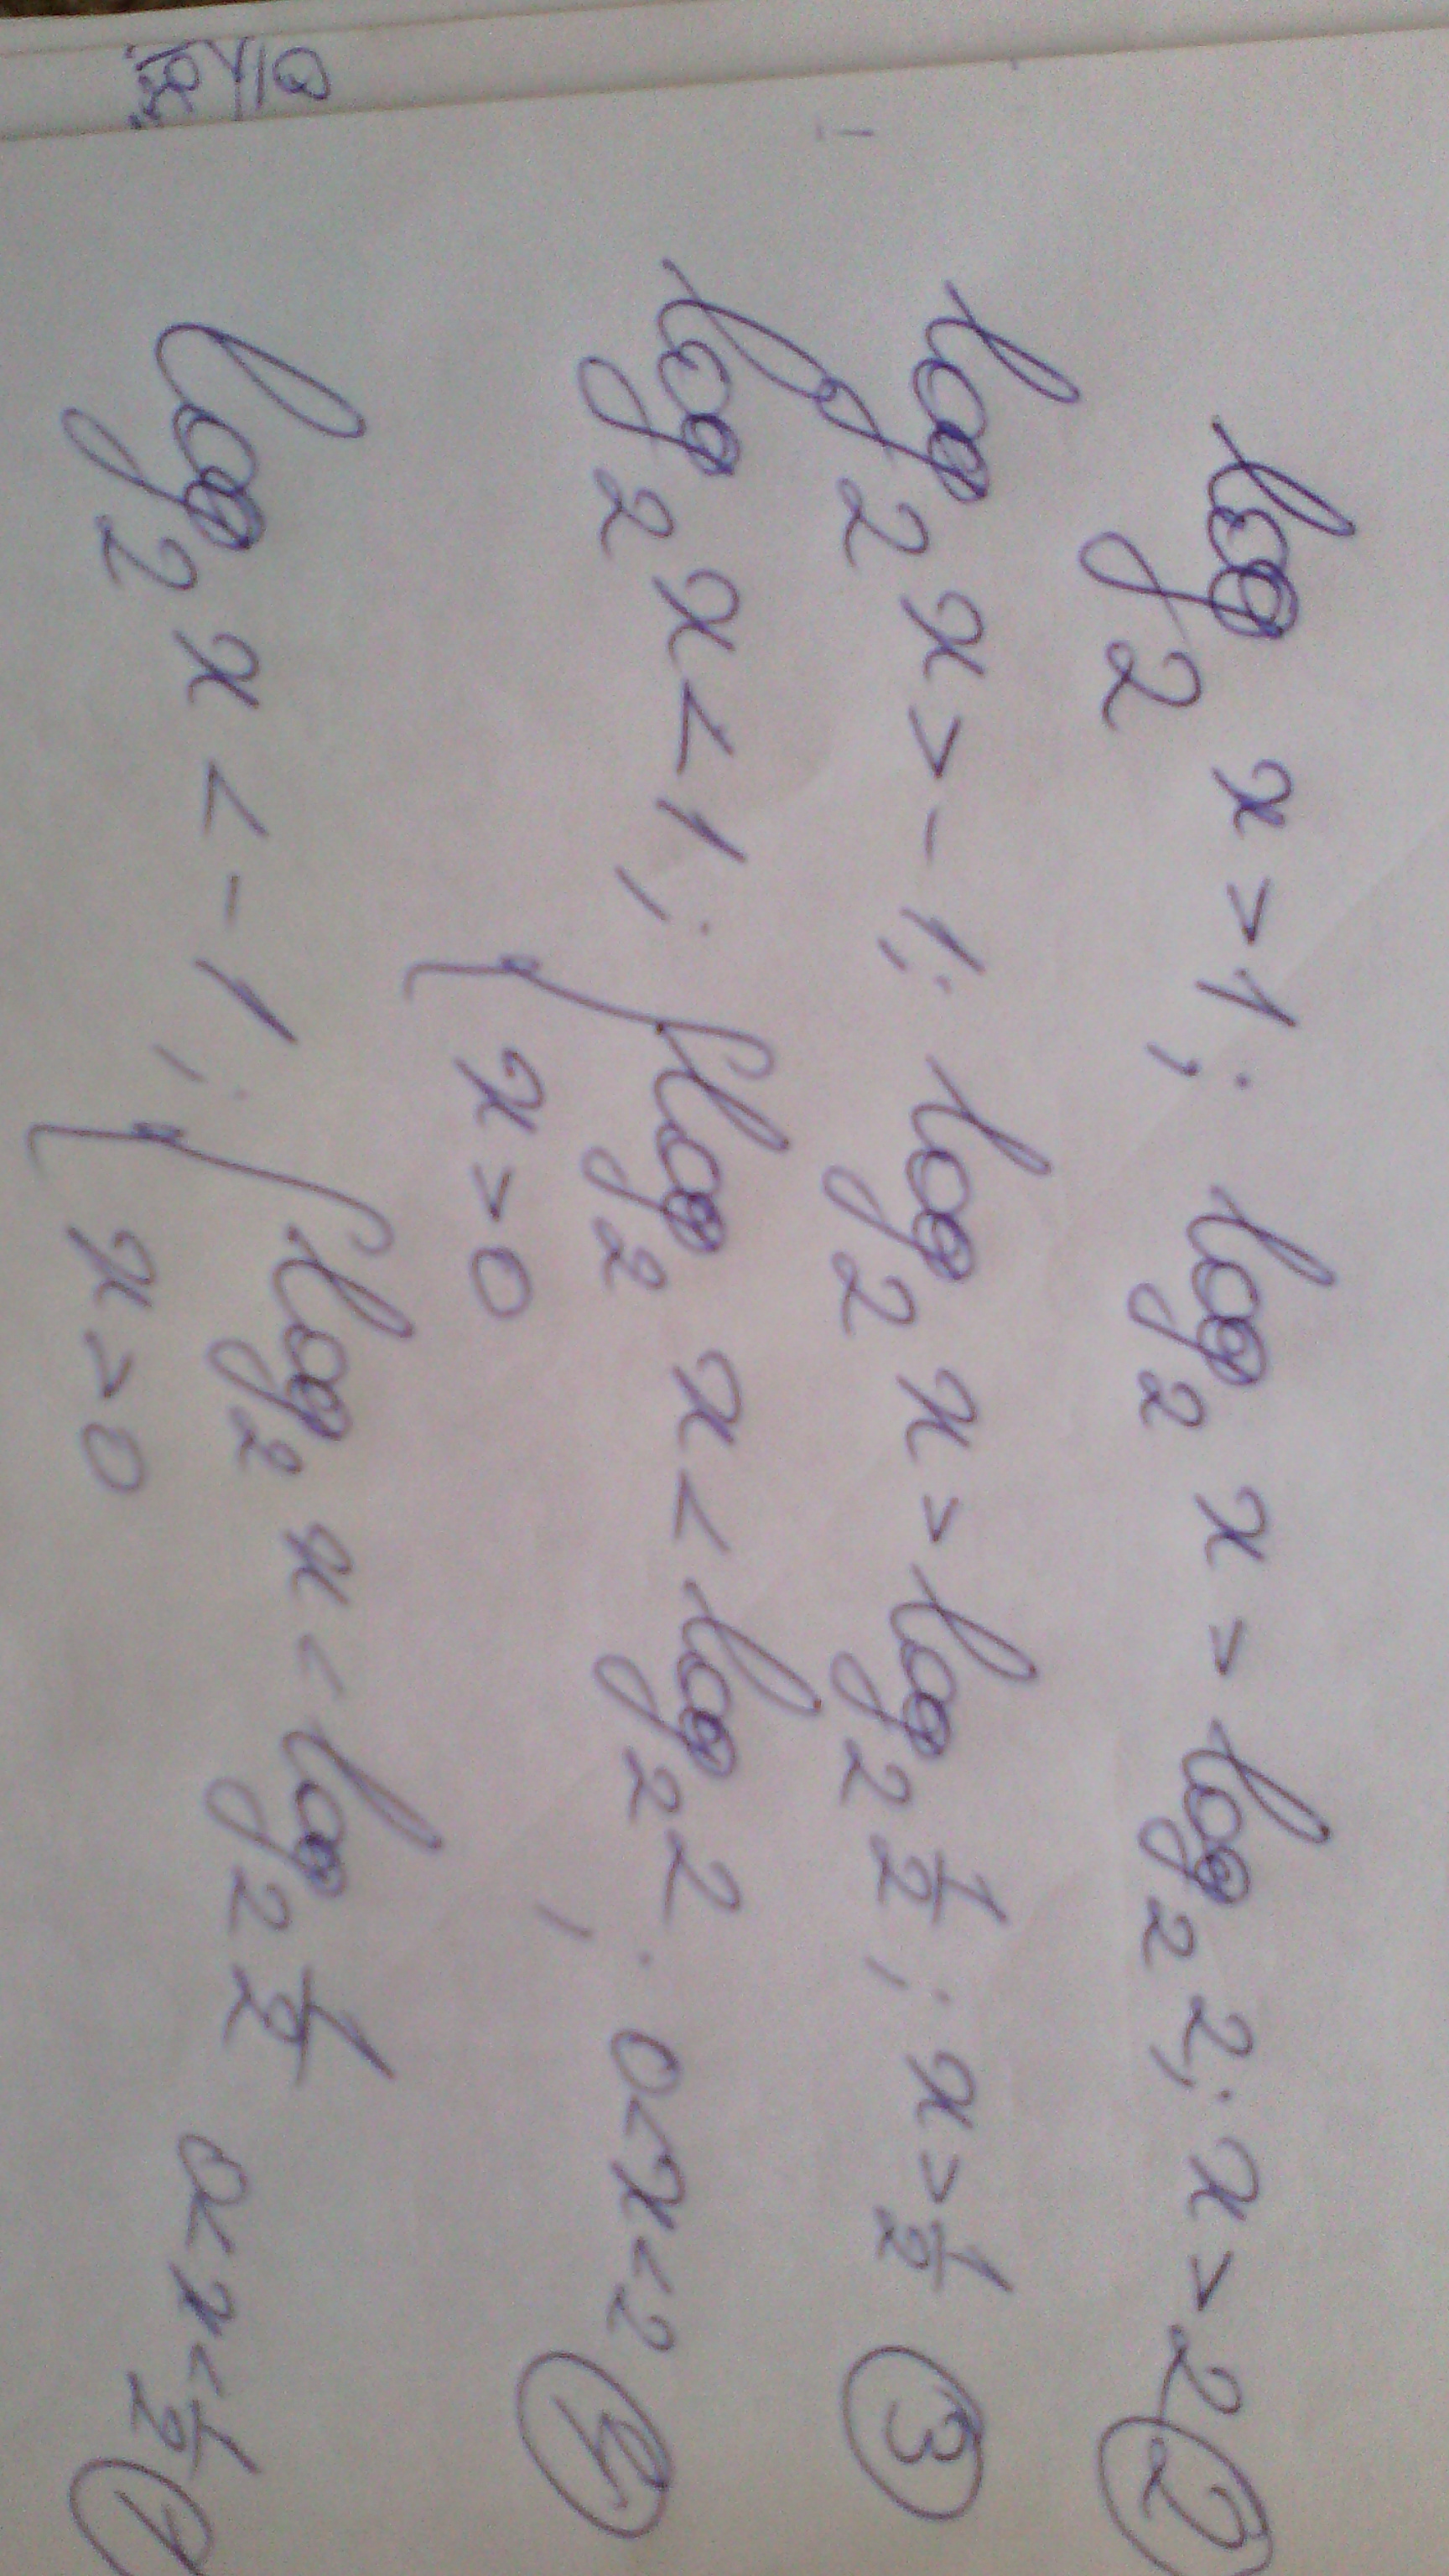 log₂ x > 1; log₂ x > log₂ 2; x > 2 ②
log₂ x > -1; log₂ x > log₂ 1/2; x > 1/2 ③
log₂ x < 1; { log₂ x < log₂ 2; 0 < x < 2 ④
x > 0
log₂ x < -1; { log₂ x < log₂ 1/2 0 < x < 1/2 ①
x > 0